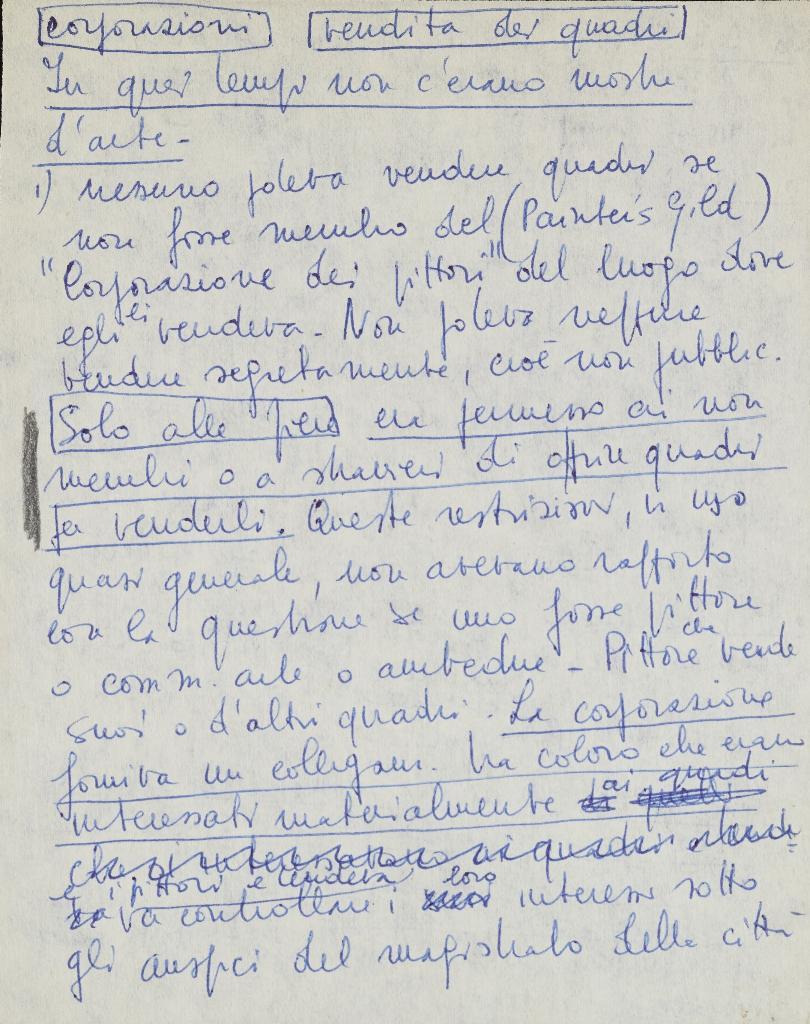 corporazioni vendita dei quadri
In quei tempi non c'erano mostre
d'arte -
1) nessuno poteva vendere quadri se
non fosse membro del (Painter's Gild)
"Corporazione dei pittori" del luogo dove
egli li vendeva - Non poteva neppure
vendere segretamente, cioè non pubblic.
Solo alle fiere era permesso ai non
membri o a stranieri di offrire quadri
per venderli. Queste restrizioni, in uso
quasi generale, non avevano rapporto
con la questione se uno fosse pittore
o comm. arte o ambedue - Pittore che vende
suoi o d'altri quadri. La corporazione
forniva un collegam. tra coloro che erano
interessati materialmente ai quadri
che si interessavano ai quadri
e i pittori e tendeva
a controllare i loro interessi sotto
gli auspici del magistrato della città